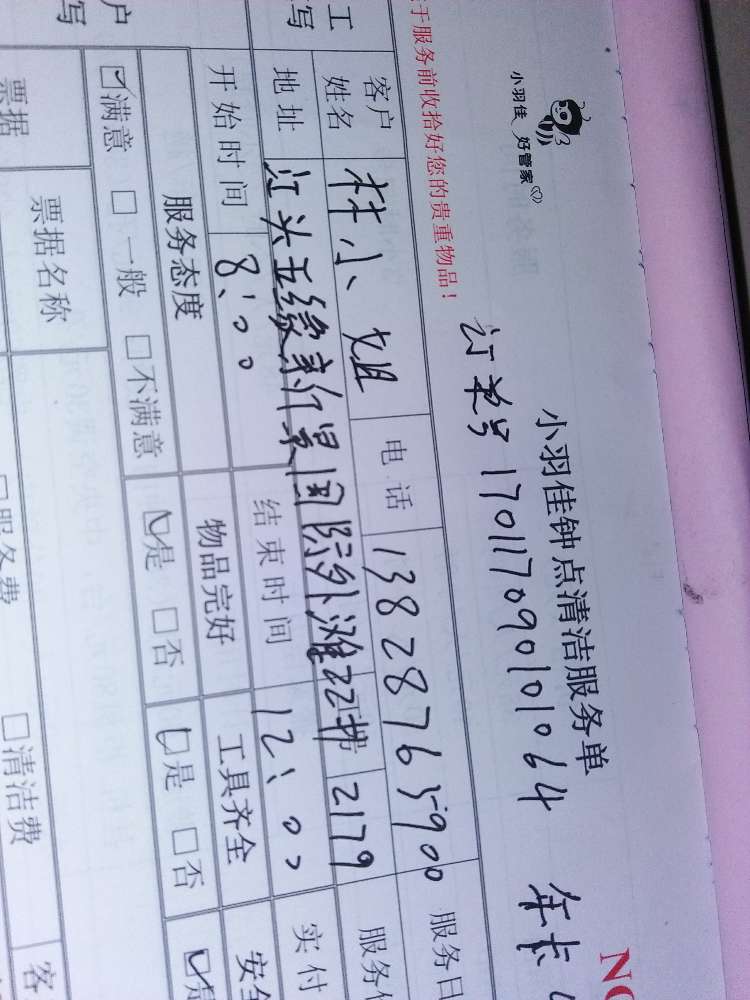 小羽佳 好管家
小羽佳钟点清洁服务单
NO
订单号 170117090101064 年卡
于服务前收拾好您的贵重物品！
客户姓名 林小姐 电话 13828765900 服务日
地址 江头五缘新景国际外滩22# 2179 服务
开始时间 8:00 结束时间 12:00 实付
服务态度 物品完好 工具齐全 安全
☑满意 □一般 □不满意 ☑是 □否 ☑是 □否 ☑是
票据 票据名称 □服务费 □清洁费 客